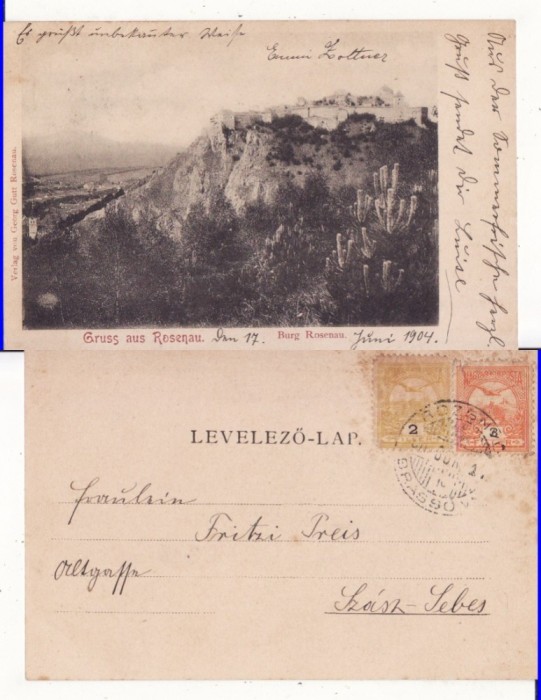 Es grüßt unbekannter Weise
Emmi Zottner
Aus der Sommerfrische herzl.
Gruß sendet Dir Luise
Verlag von Georg Gutt Rosenau.
Gruss aus Rosenau. Den 17. Burg Rosenau. Juni 1904.
LEVELEZŐ-LAP.
2
2
BRASSÓ
Fräulein
Fritzi Preis
Altgasse
Szász-Sebes